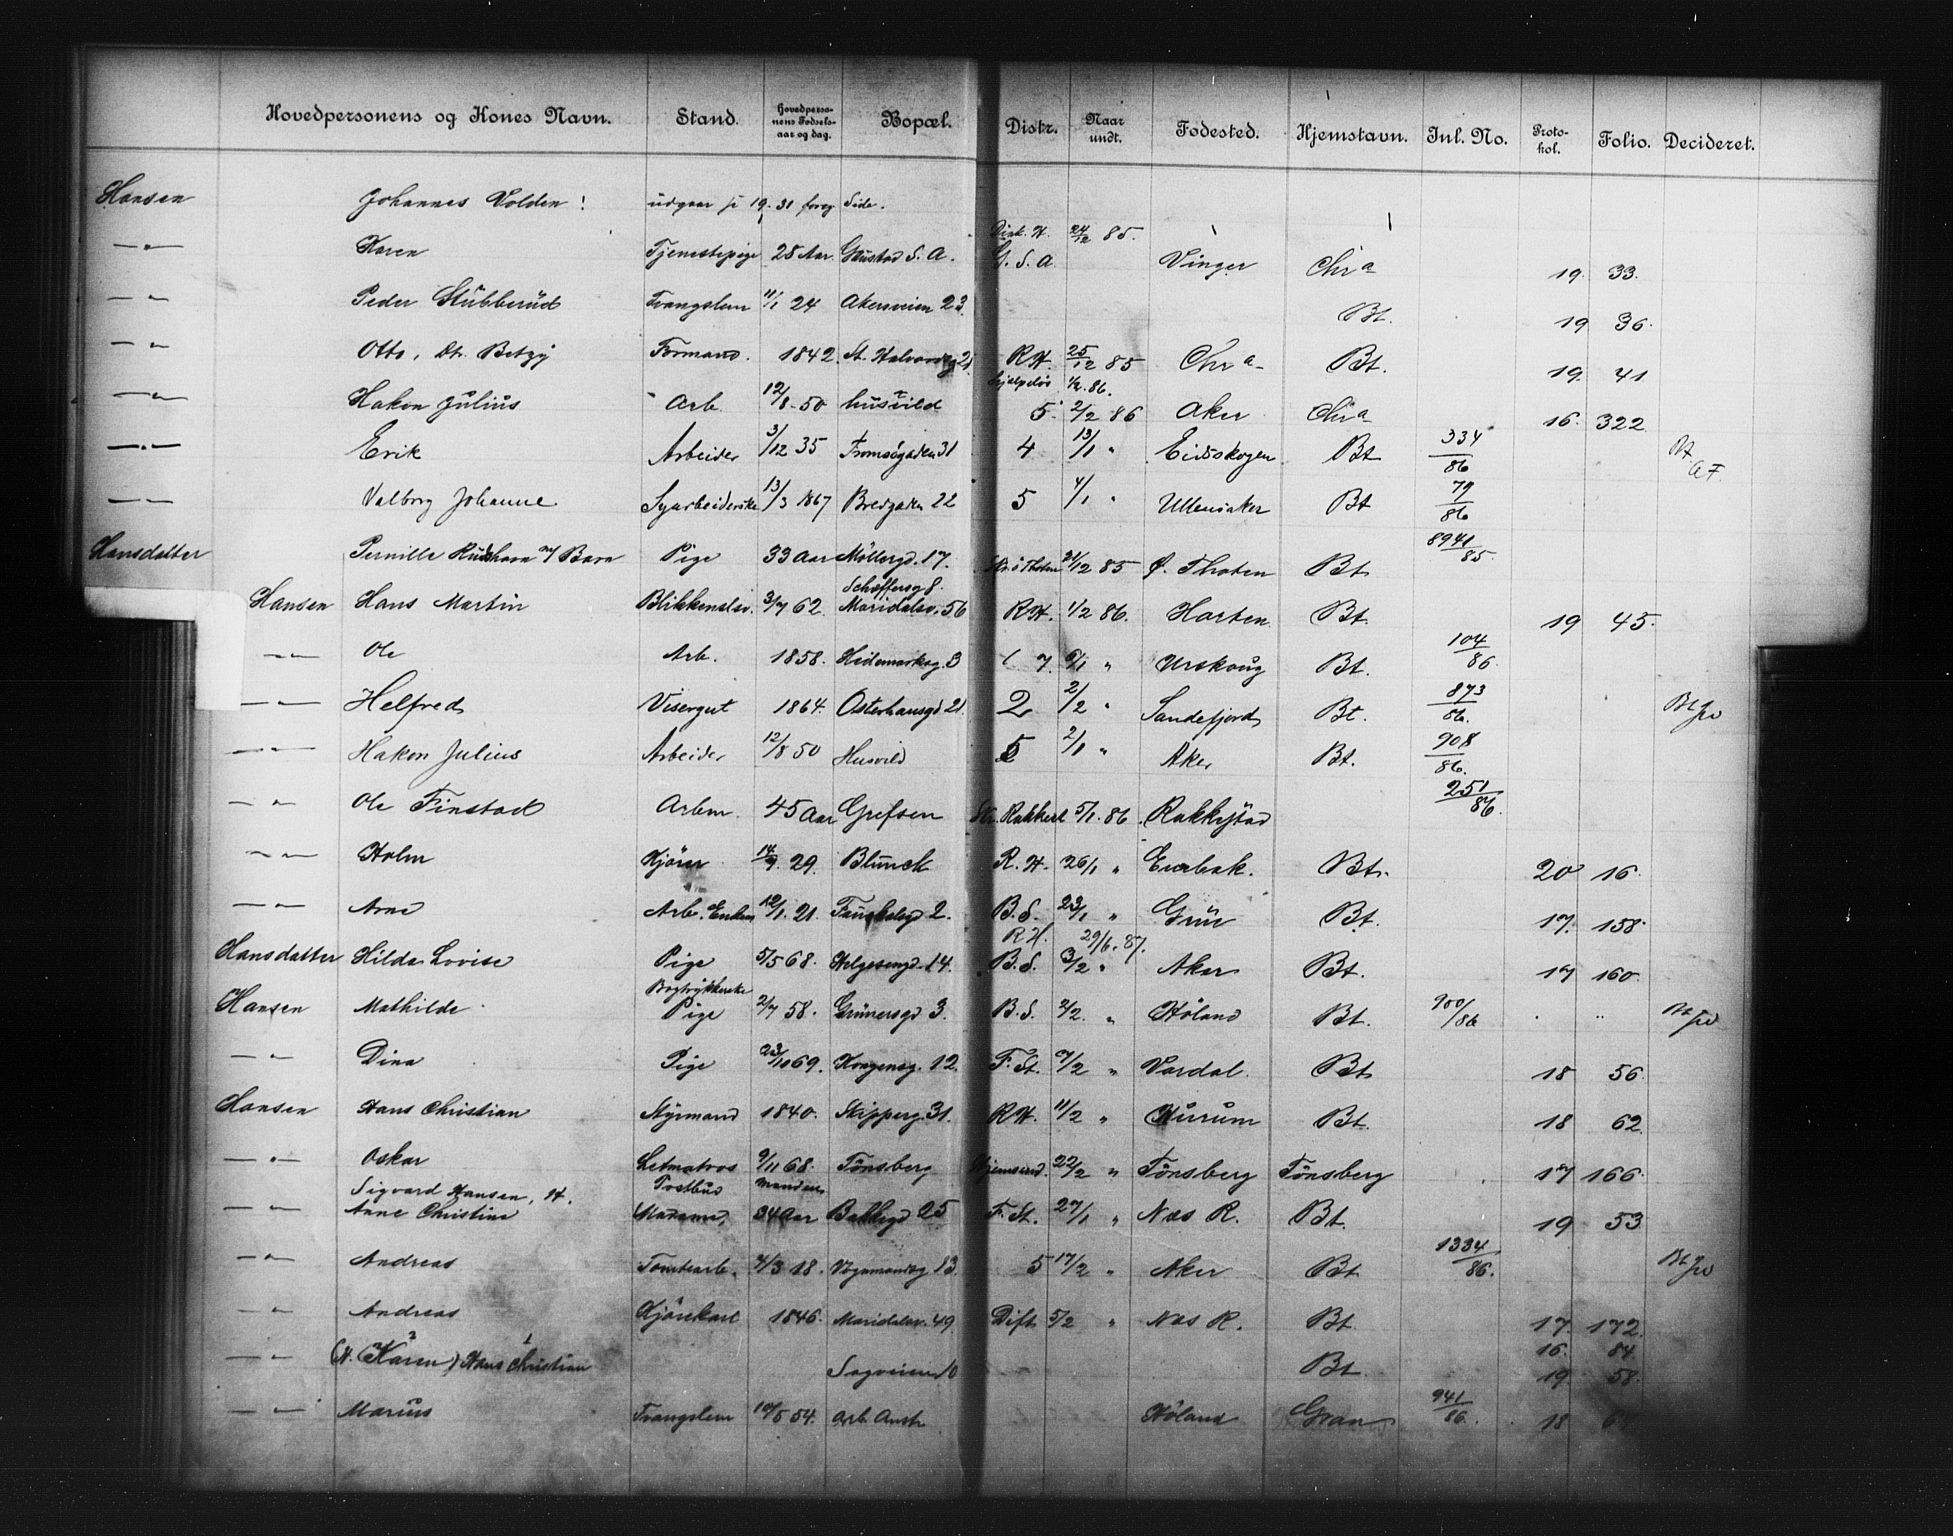 Hovedpersonens og Kones Navn. Stand. Hovedpersonens Fødselsaar og dag. Bopæl. Distr. Naar undt. Fødested. Hjemstavn. Inl. No. Protokol. Folio. Decideret.
Hansen Johannes Volden ! udgaar se 19. 31 foreg Side.
—"— Karen Tjenestepige 28 Aar Gaustad S. A. G. S. A. 24/12 85. Vinger Chr a 19. 33.
—"— Peder Stubberud Tvangslem 11/1 24 Akersveien 23. Bt. 19 36.
—"— Otto, Dt. Betzy Formand. 1842. St. Halvordsg 21 R.H. 25/12 85 Chr a Bt. 19. 41
—"— Hakon Julius Arb. 12/8 50 husvild hjelpeløs 1/2. 86. 5. 2/2 86 Aker Chr a 16. 322
—"— Erik Arbeider 3/12 35 Tromsøgaden 31 4 13/1 " Eidsskogen Bt 334/86 Bt
—"— Valborg Johanne Syarbeiderske 13/3 1867 Bredgaden 22 5 4/1 " Ullensaker Bt 79/86
Hansdatter Pernille m/ Barn Pige 33 Aar Møllergd. 17. 21/12 85 Ø. Thoten Bt 8941/85.
Schæffersg 8.
Hansen Hans Martin Blikkenslav. 3/7 62. Maridalsv. 56 R.H. 1/2 86. Horten Bt. 19 45.
—"— Ole Arb. 1858. Hedemarksg. 3 7 6/1 " Urskoug Bt. 104/86
—"— Helfred Visergut 1864. Osterhausgd 21. 2 2/2 " Sandefjord Bt. 873/86.
—"— Hakon Julius Arbeider 12/8 50 Husvild 5 2/1 " Aker Bt. 908/86.
—"— Ole Finstad Arbm. 45 Aar Grefsen 5/1. 86. Rakkestad 251/86.
—"— Holm Kjører 14/9. 29. Blunck R.H. 26/1 " Enebak. Bt. 20 16.
—"— Arne Arb. Enkem 12/1. 21. 2. B.S. 23/1 " Grue Bt. 17. 158.
R.H. 29/6. 87.
Hansdatter Hilda Lovise Pige 5/5 68. Helgesengd. 14. B.S. 3/2 " Aker Bt. 17 160.
Bogtrykkerske
Hansen Mathilde Pige 2/7 58. Grünersgd 3. B.S. 2/2. " Høland Bt. 900/86
—"— Dina Pige 23/10 69. Kongensg. 12. F. St. 7/2 " Vardal. Bt 18 56.
Hansen Hans Christian Styrmand 1840. Skipperg. 31. R.H. 11/2 " Hurum Bt. 18 62.
—"— Oskar Letmatros 9/11 68. Tønsberg Hjemsend. 22/2 " Tønsberg Tønsberg 17 166.
Sigvard Hansen, H. Postbud manden
—"— Anne Christine Madame, 34 Aar Bakkegd 25 F. St. 27/1 " Næs R. Bt. 19 53
—"— Andreas Tomtearb. 4/3 18. Vognmandsg 13. 5 17/2 " Aker Bt 1334/86.
—"— Andreas Kjørekarl 1846. Maridalsv. 49 Dift 5/2 " Næs R. Bt. 17. 172.
—"— (H. Karen) Hans Christian Sagveien 10 Bt. 16. 84. 19. 58.
—"— Marius Tvangslem 10/5 54. Arb. Anst. Høland Gran 941/86. 18